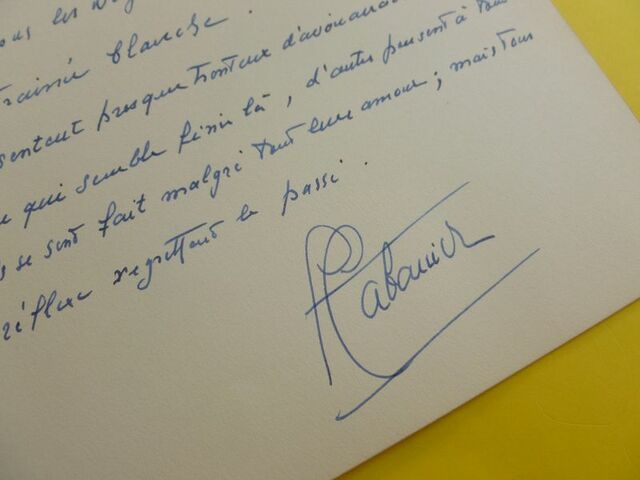 ous les
traînée blanche.
sentent presque honteux d'avouer
qui semble fini là, d'autres pensent à tout
se sont fait malgré tout leur amour ; mais tous
reflue regrettant le passé.
Cabanier